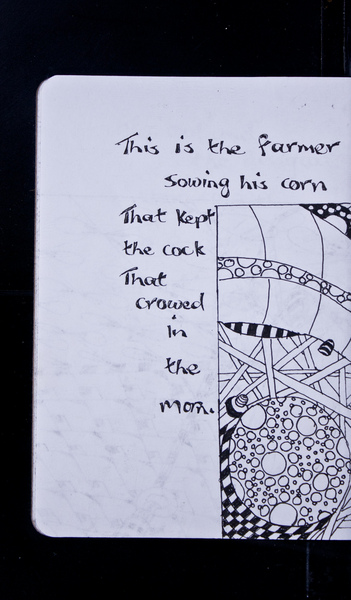 This is the farmer
Sowing his corn
That kept
the cock
That
crowed
in
the
morn.